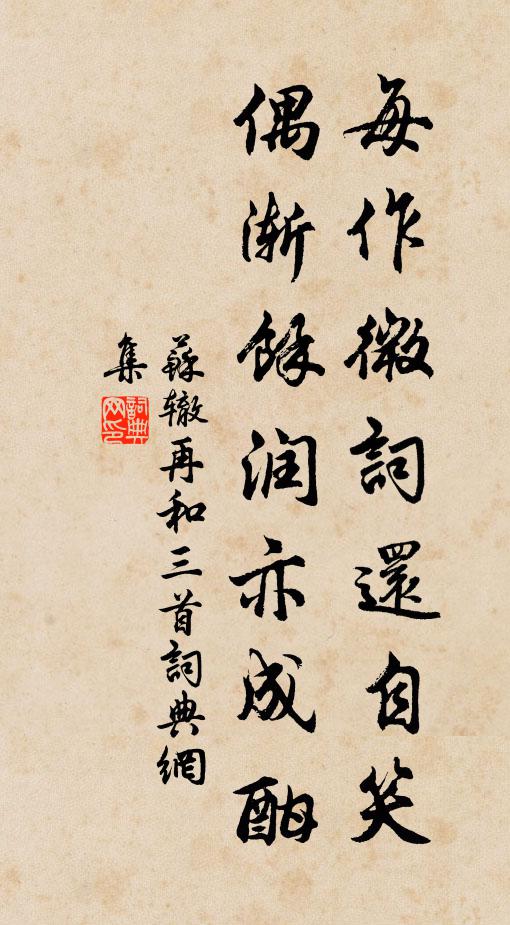 每作微詞還自笑
偶漸餘润亦成酣
蘇辙再和三首詞典網
集
詞典网印